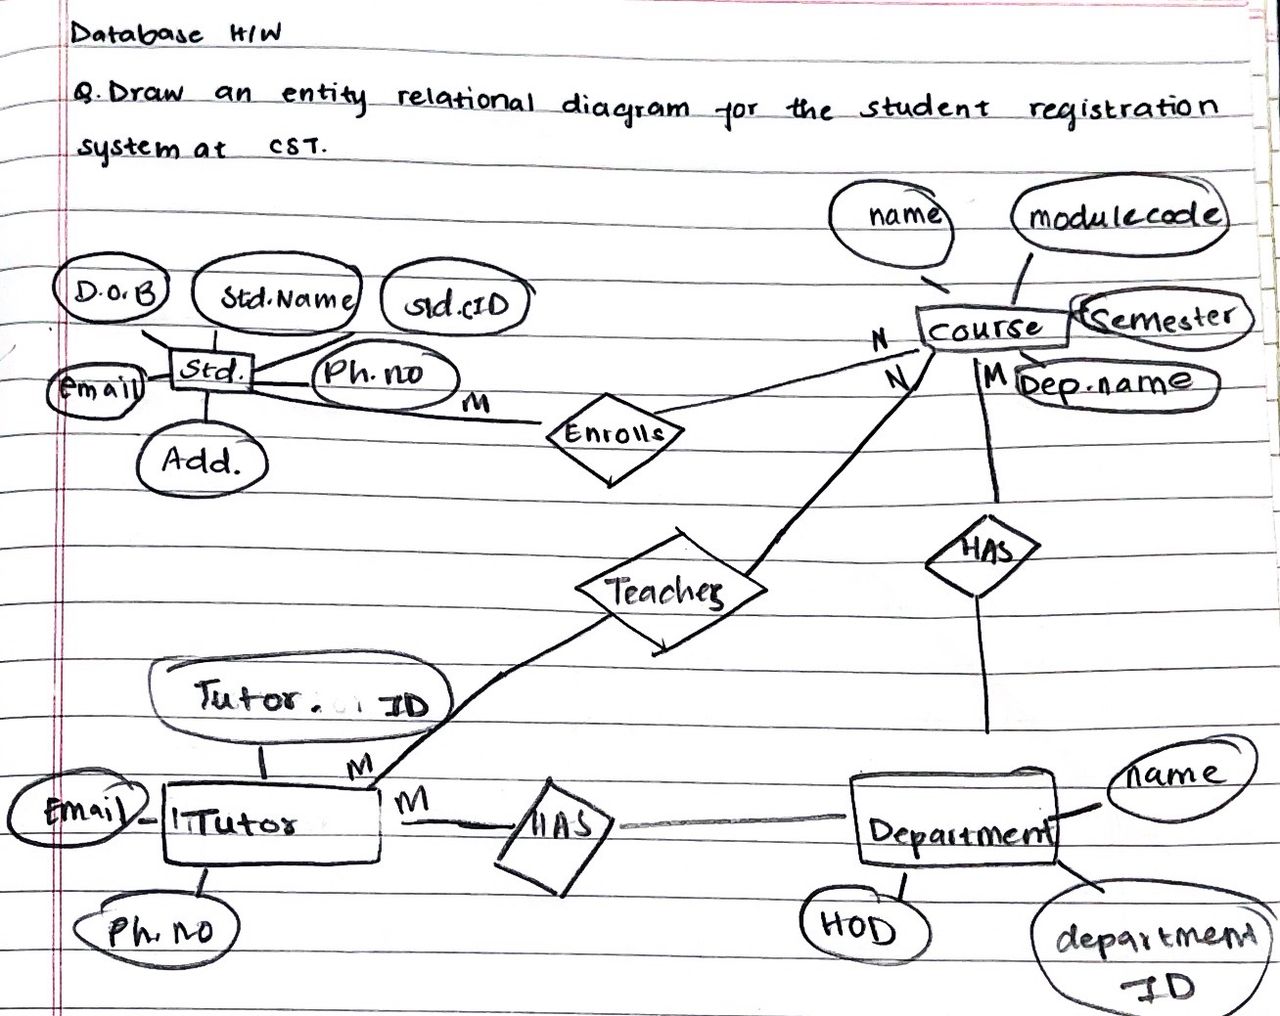 Database H/W
Q. Draw an entity relational diagram for the student registration
system at CST.
name
modulecode
D.O.B
Std.Name
Std.CID
Semester
Course
N
Std.
Ph.no
email
N
M
Dep.name
M
Enrolls
Add.
HAS
Teaches
Tutor. ID
M
name
M
Email
Tutor
HAS
Department
Ph.no
HOD
department
ID